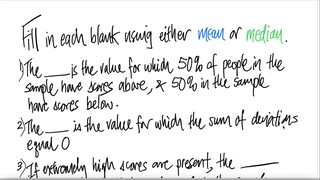 Fill in each blank using either mean or median.
1) The ___ is the value for which 50% of people in the
sample have scores above, & 50% in the sample
have scores below.
2) The ___ is the value for which the sum of deviations
equal 0
3) If extremely high scores are present, the ___